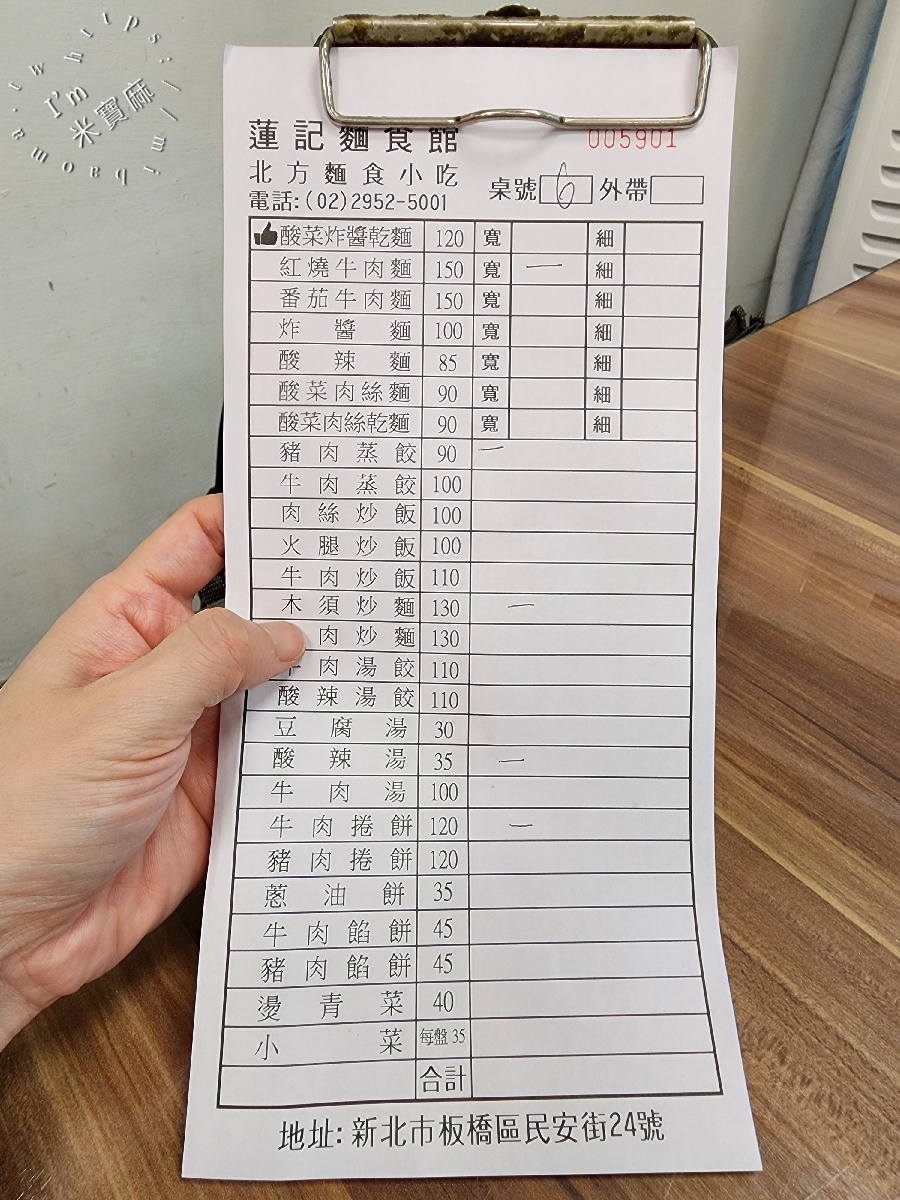 I'm
米寶麻
蓮記麵食館
005901
北方麵食小吃
電話:(02)2952-5001
桌號 6 外帶
酸菜炸醬乾麵 120 寬 細
紅燒牛肉麵 150 寬 一 細
番茄牛肉麵 150 寬 細
炸醬麵 100 寬 細
酸辣麵 85 寬 細
酸菜肉絲麵 90 寬 細
酸菜肉絲乾麵 90 寬 細
豬肉蒸餃 90 一
牛肉蒸餃 100
肉絲炒飯 100
火腿炒飯 100
牛肉炒飯 110
木須炒麵 130 一
肉炒麵 130
牛肉湯餃 110
酸辣湯餃 110
豆腐湯 30
酸辣湯 35 一
牛肉湯 100
牛肉捲餅 120 一
豬肉捲餅 120
蔥油餅 35
牛肉餡餅 45
豬肉餡餅 45
燙青菜 40
小菜 每盤35
合計
地址:新北市板橋區民安街24號